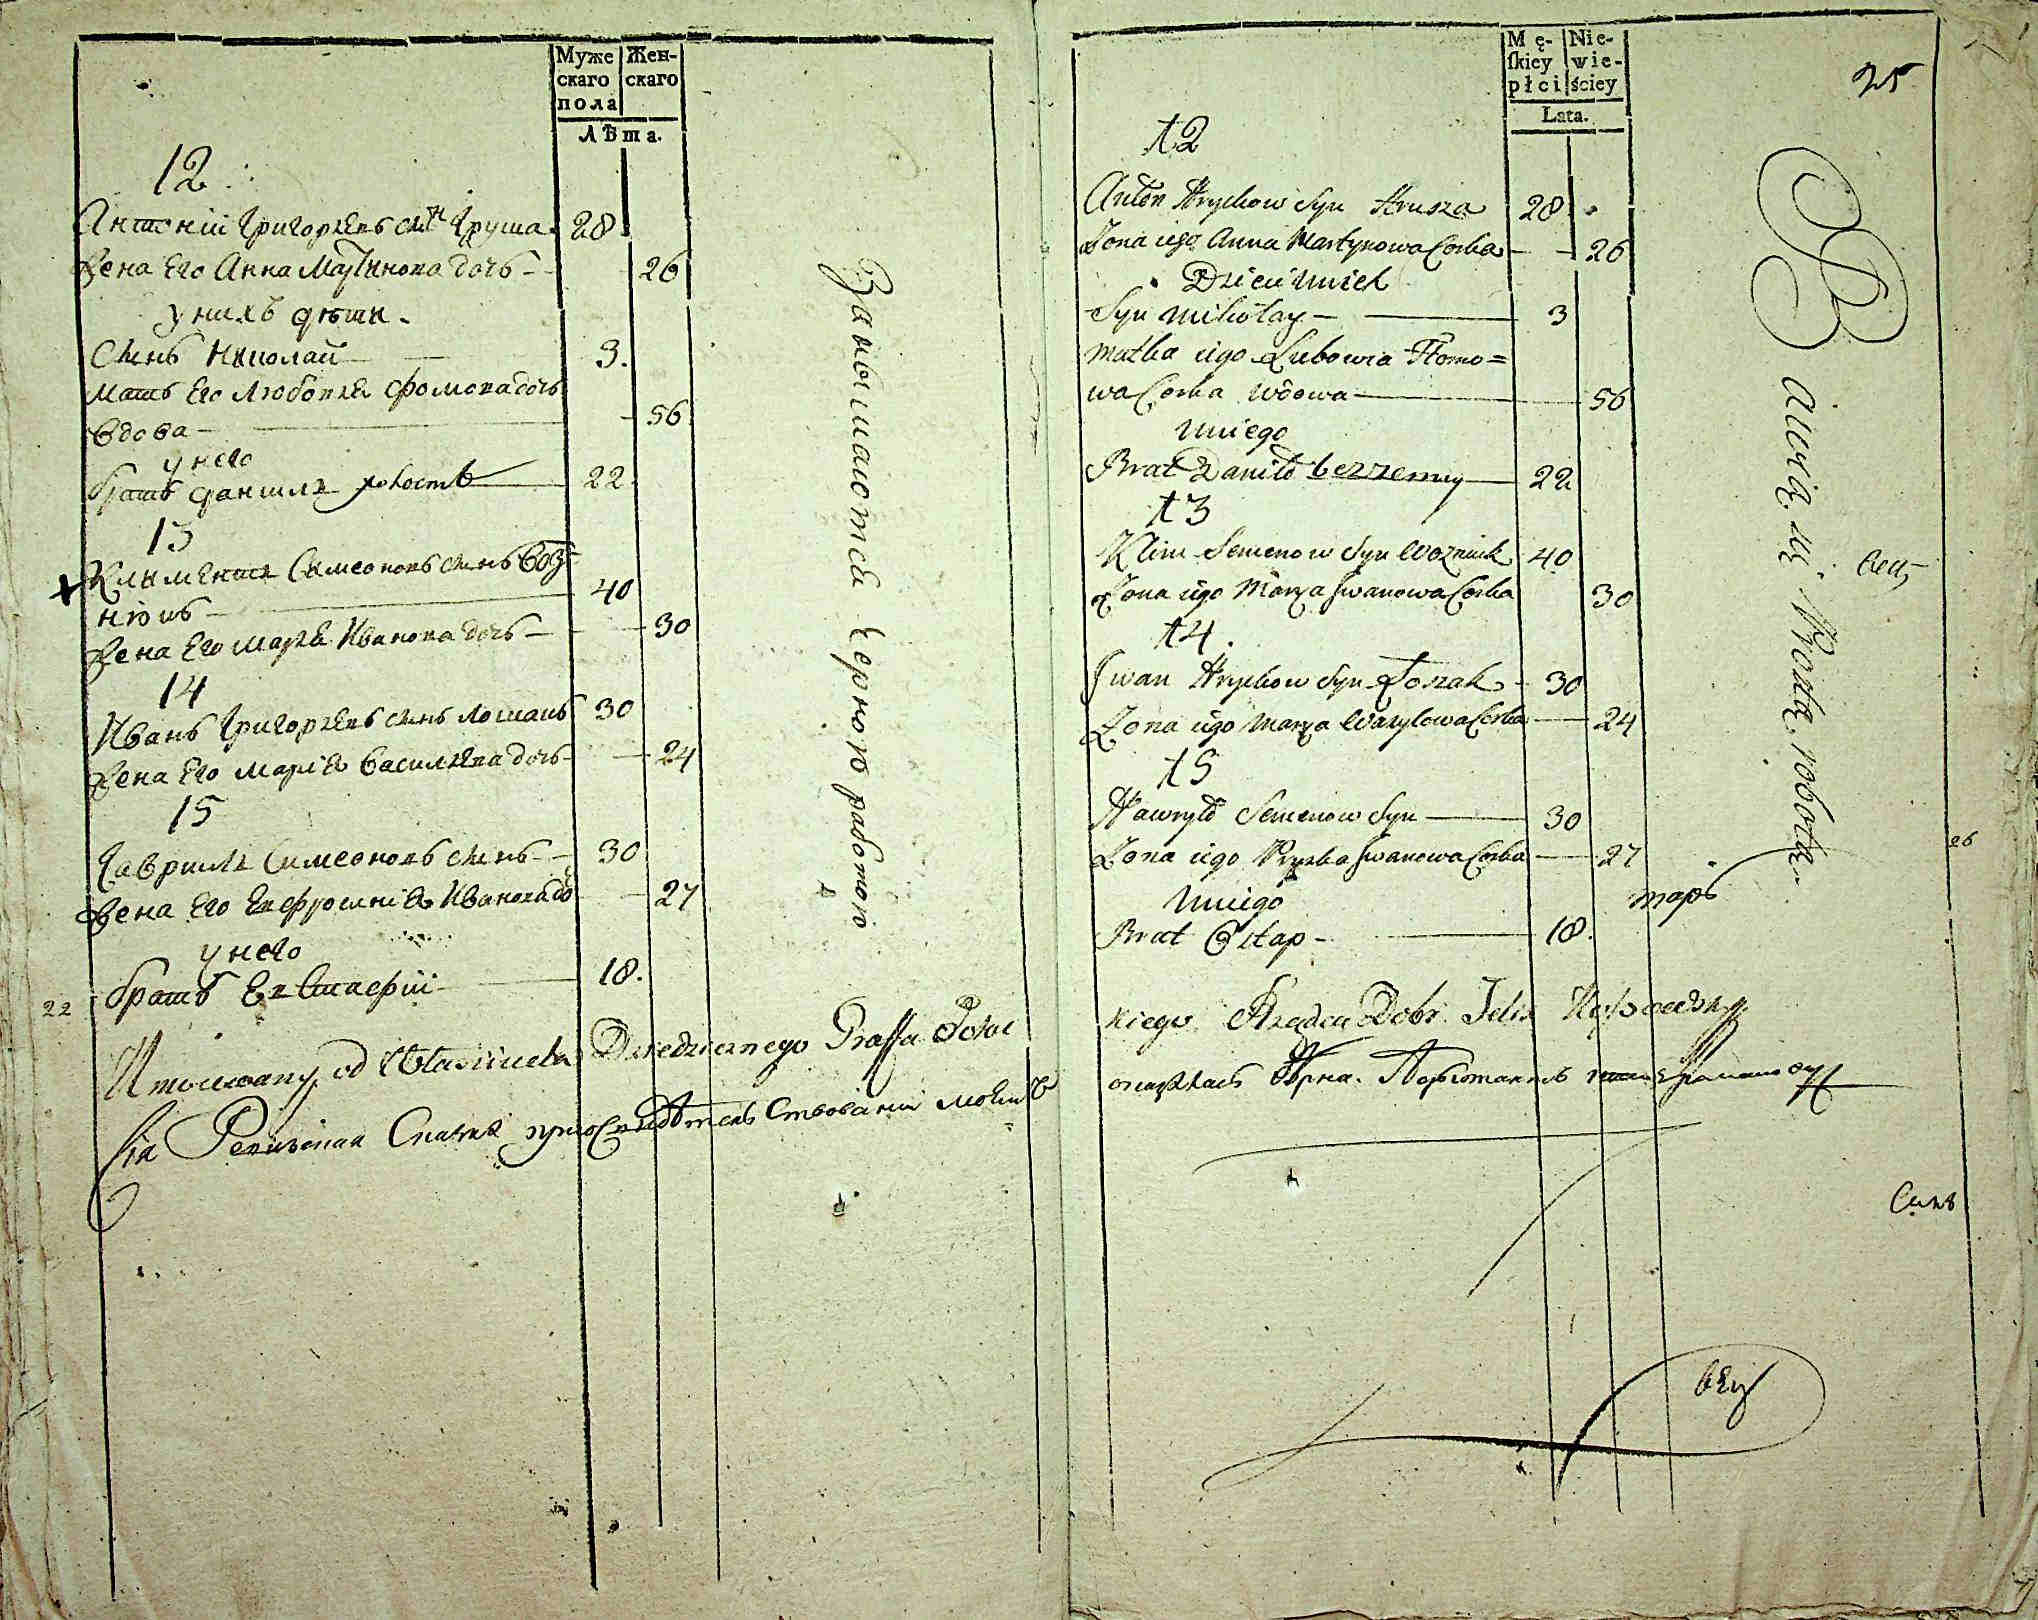 Муже Жен-
скаго скаго
пола
Лѣта.
12
Антоній Григорьевъ сынъ Груша 28
Жена Его Анна Мартинова дочь 26
у нихъ дѣти
Сынъ Николай 3.
Мать Его Любовія Фомова дочь
вдова 56
у него
братъ Данила холостъ 22
13
Климентій Симеоновъ сынъ Воз-
нюкъ 40
Жена Его Марія Иванова дочь 30
14
Иванъ Григорьевъ сынъ Лошакъ 30
Жена Его Марія Васильева дочь 24
15
Гаврило Симеоновъ сынъ 30
Жена Его Евфросинія Иванова до 27
у него
братъ Евстафій 18.
22
Занымаются Черною работою
od Własciciela Dziedzicznego Graffa Potoc
Сія Ревизская Сказка
25
Mę- Nie-
skiey wie-
płci ściey
Lata.
12
Anton Hryckow Syn Hrusza 28
Zona iego Anna Martynowa Corka 26
Dzieci Unich
Syn Mikołay 3
Matka iego Lubowia Homo=
wa Corka Wdowa 56
Uniego
Brat Daniło bezzenny 22
13
Klim Semenow Syn Wozniuk 40
Zona iego Marya Iwanowa Corka 30
14.
Iwan Hryckow Syn Łoszak 30
Zona iego Marya Wasylowa Corka 24
15
Hawryło Semenow Syn 30
Zona iego Pryska Iwanowa Corka 27
Uniego
Brat Ostap 18.
Bawią się Prostą robotą
kiego Rządca Dobr